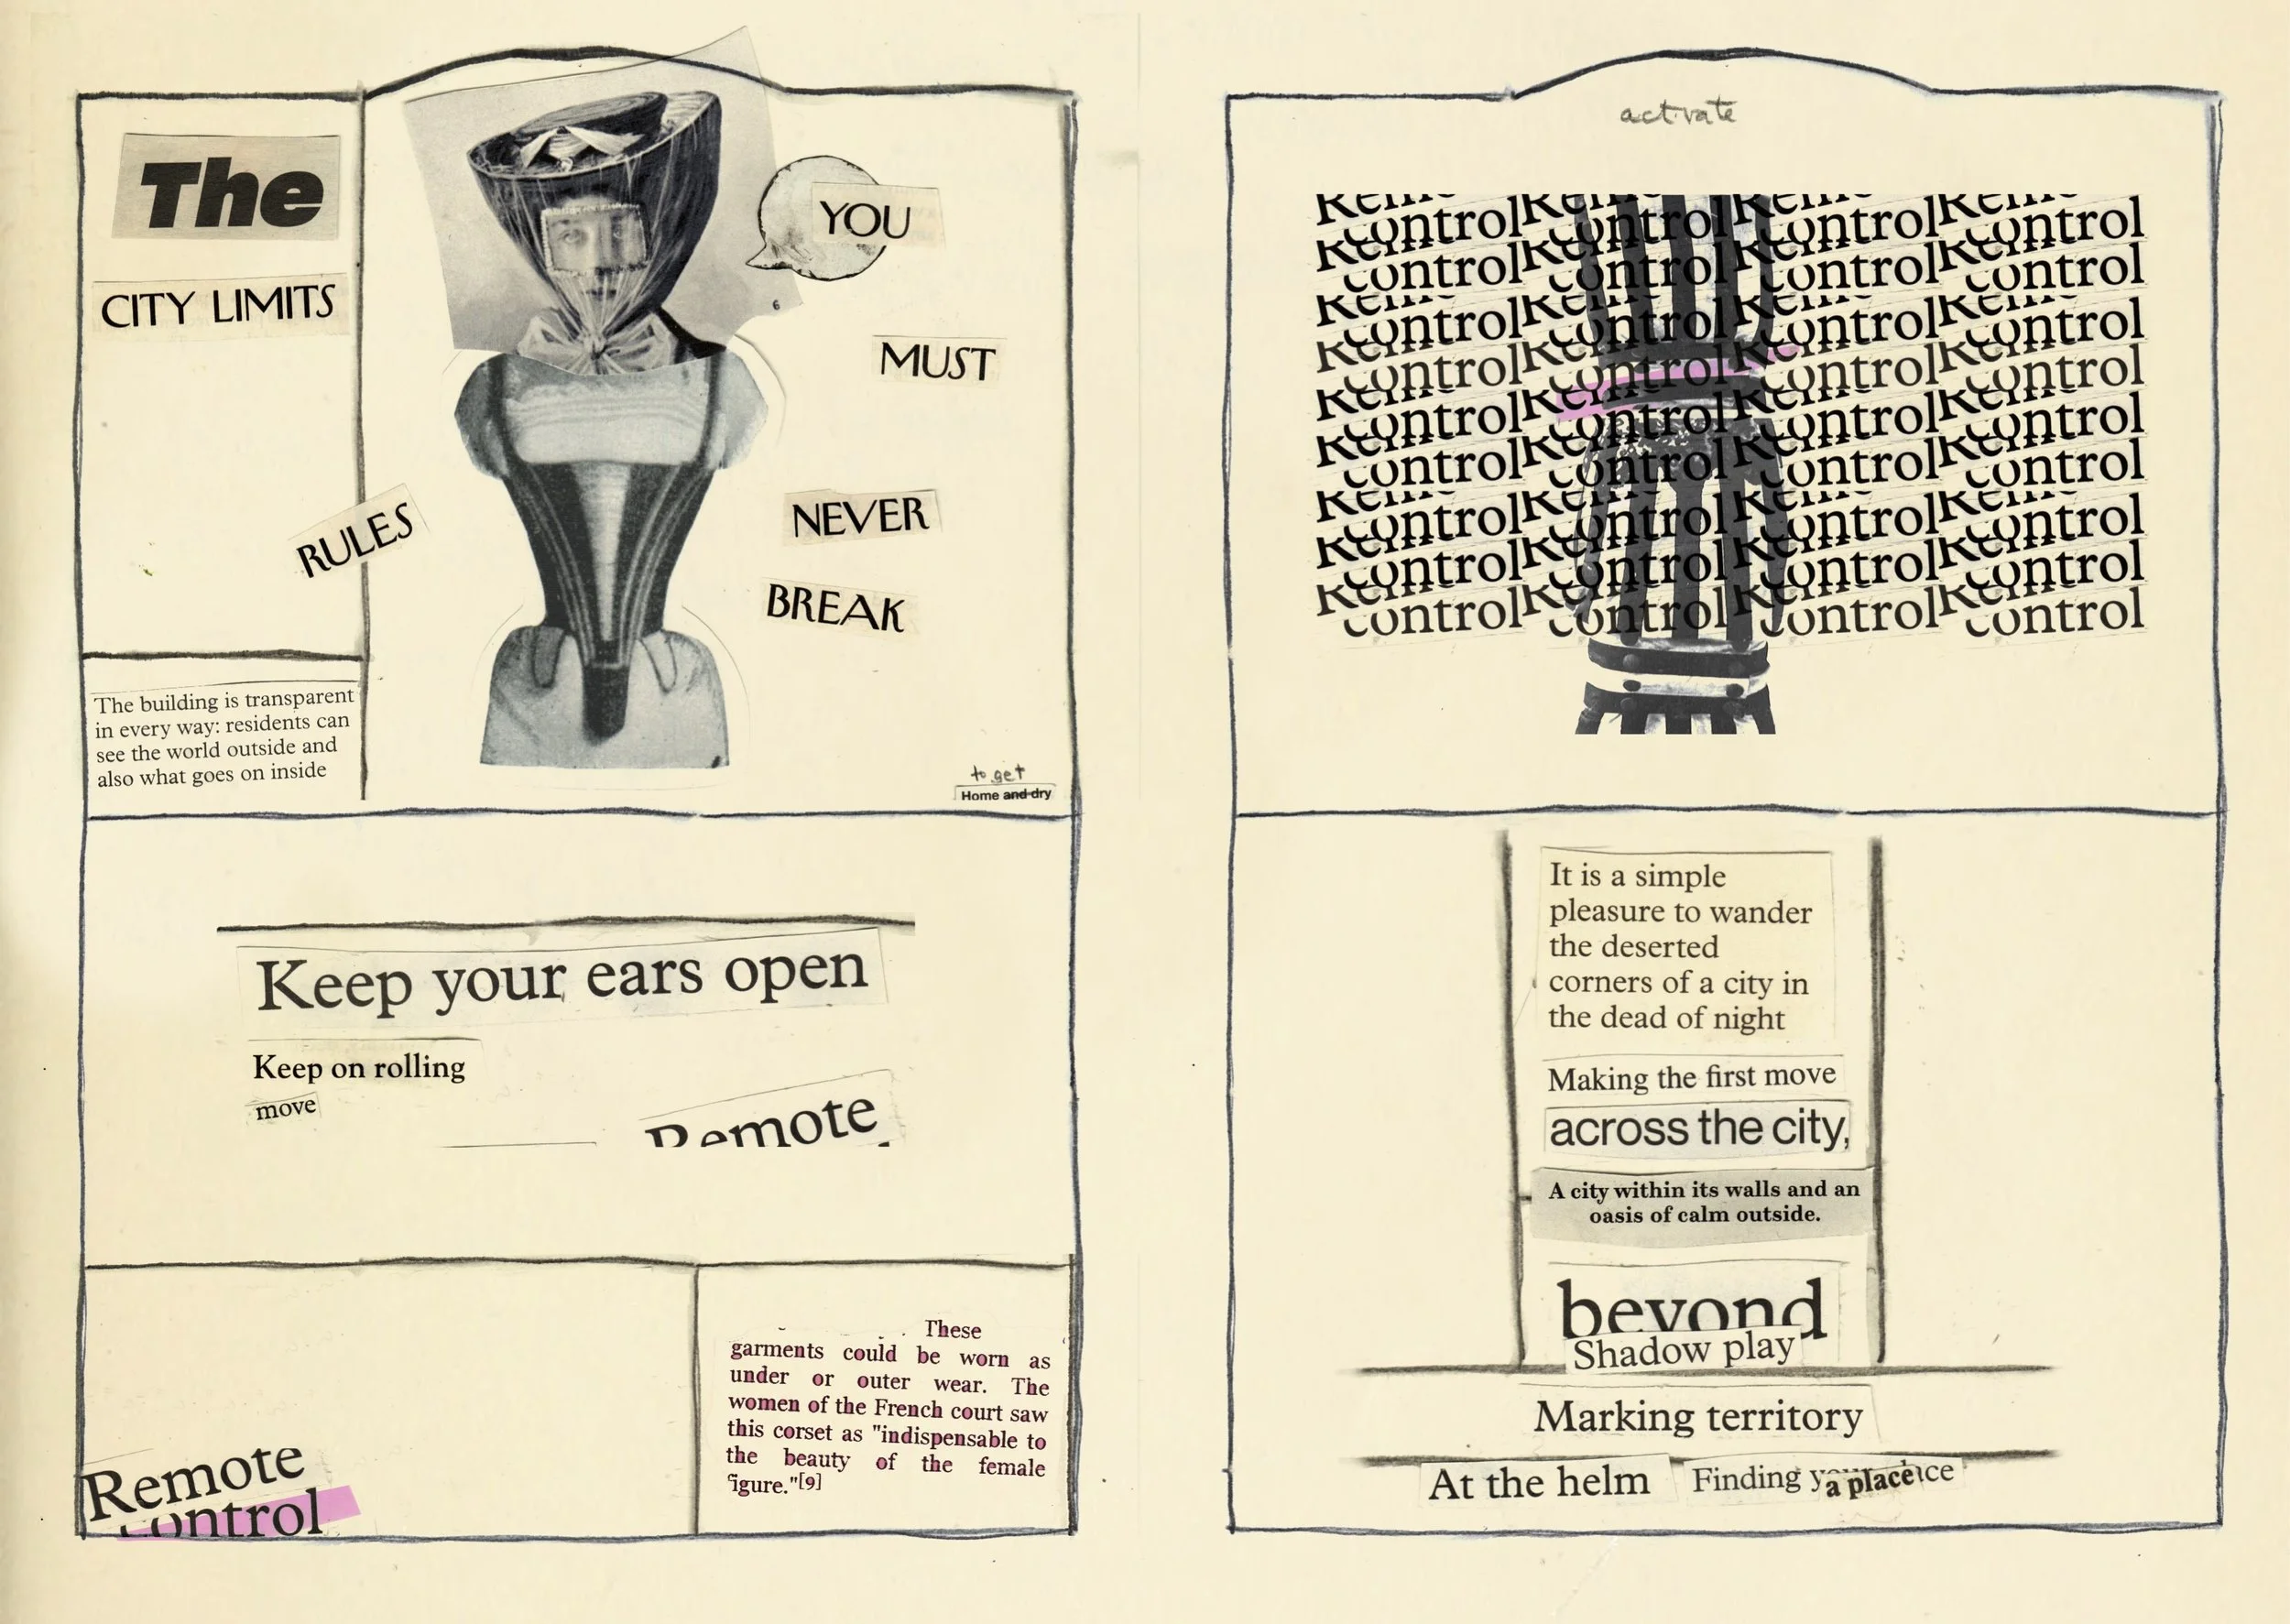 The
CITY LIMITS
RULES
The building is transparent
in every way: residents can
see the world outside and
also what goes on inside
6
YOU
MUST
NEVER
BREAK
to get
Home and dry
Keep your ears open
Keep on rolling
move
Remote
Remote
control
These
garments could be worn as
under or outer wear. The
women of the French court saw
this corset as "indispensable to
the beauty of the female
figure."[9]
activate
control control control control
control control control control
control control control control
control control control control
control control control control
control control control control
control control control control
control control control control
control control control control
It is a simple
pleasure to wander
the deserted
corners of a city in
the dead of night
Making the first move
across the city,
A city within its walls and an
oasis of calm outside.
beyond
Shadow play
Marking territory
At the helm
Finding
a place